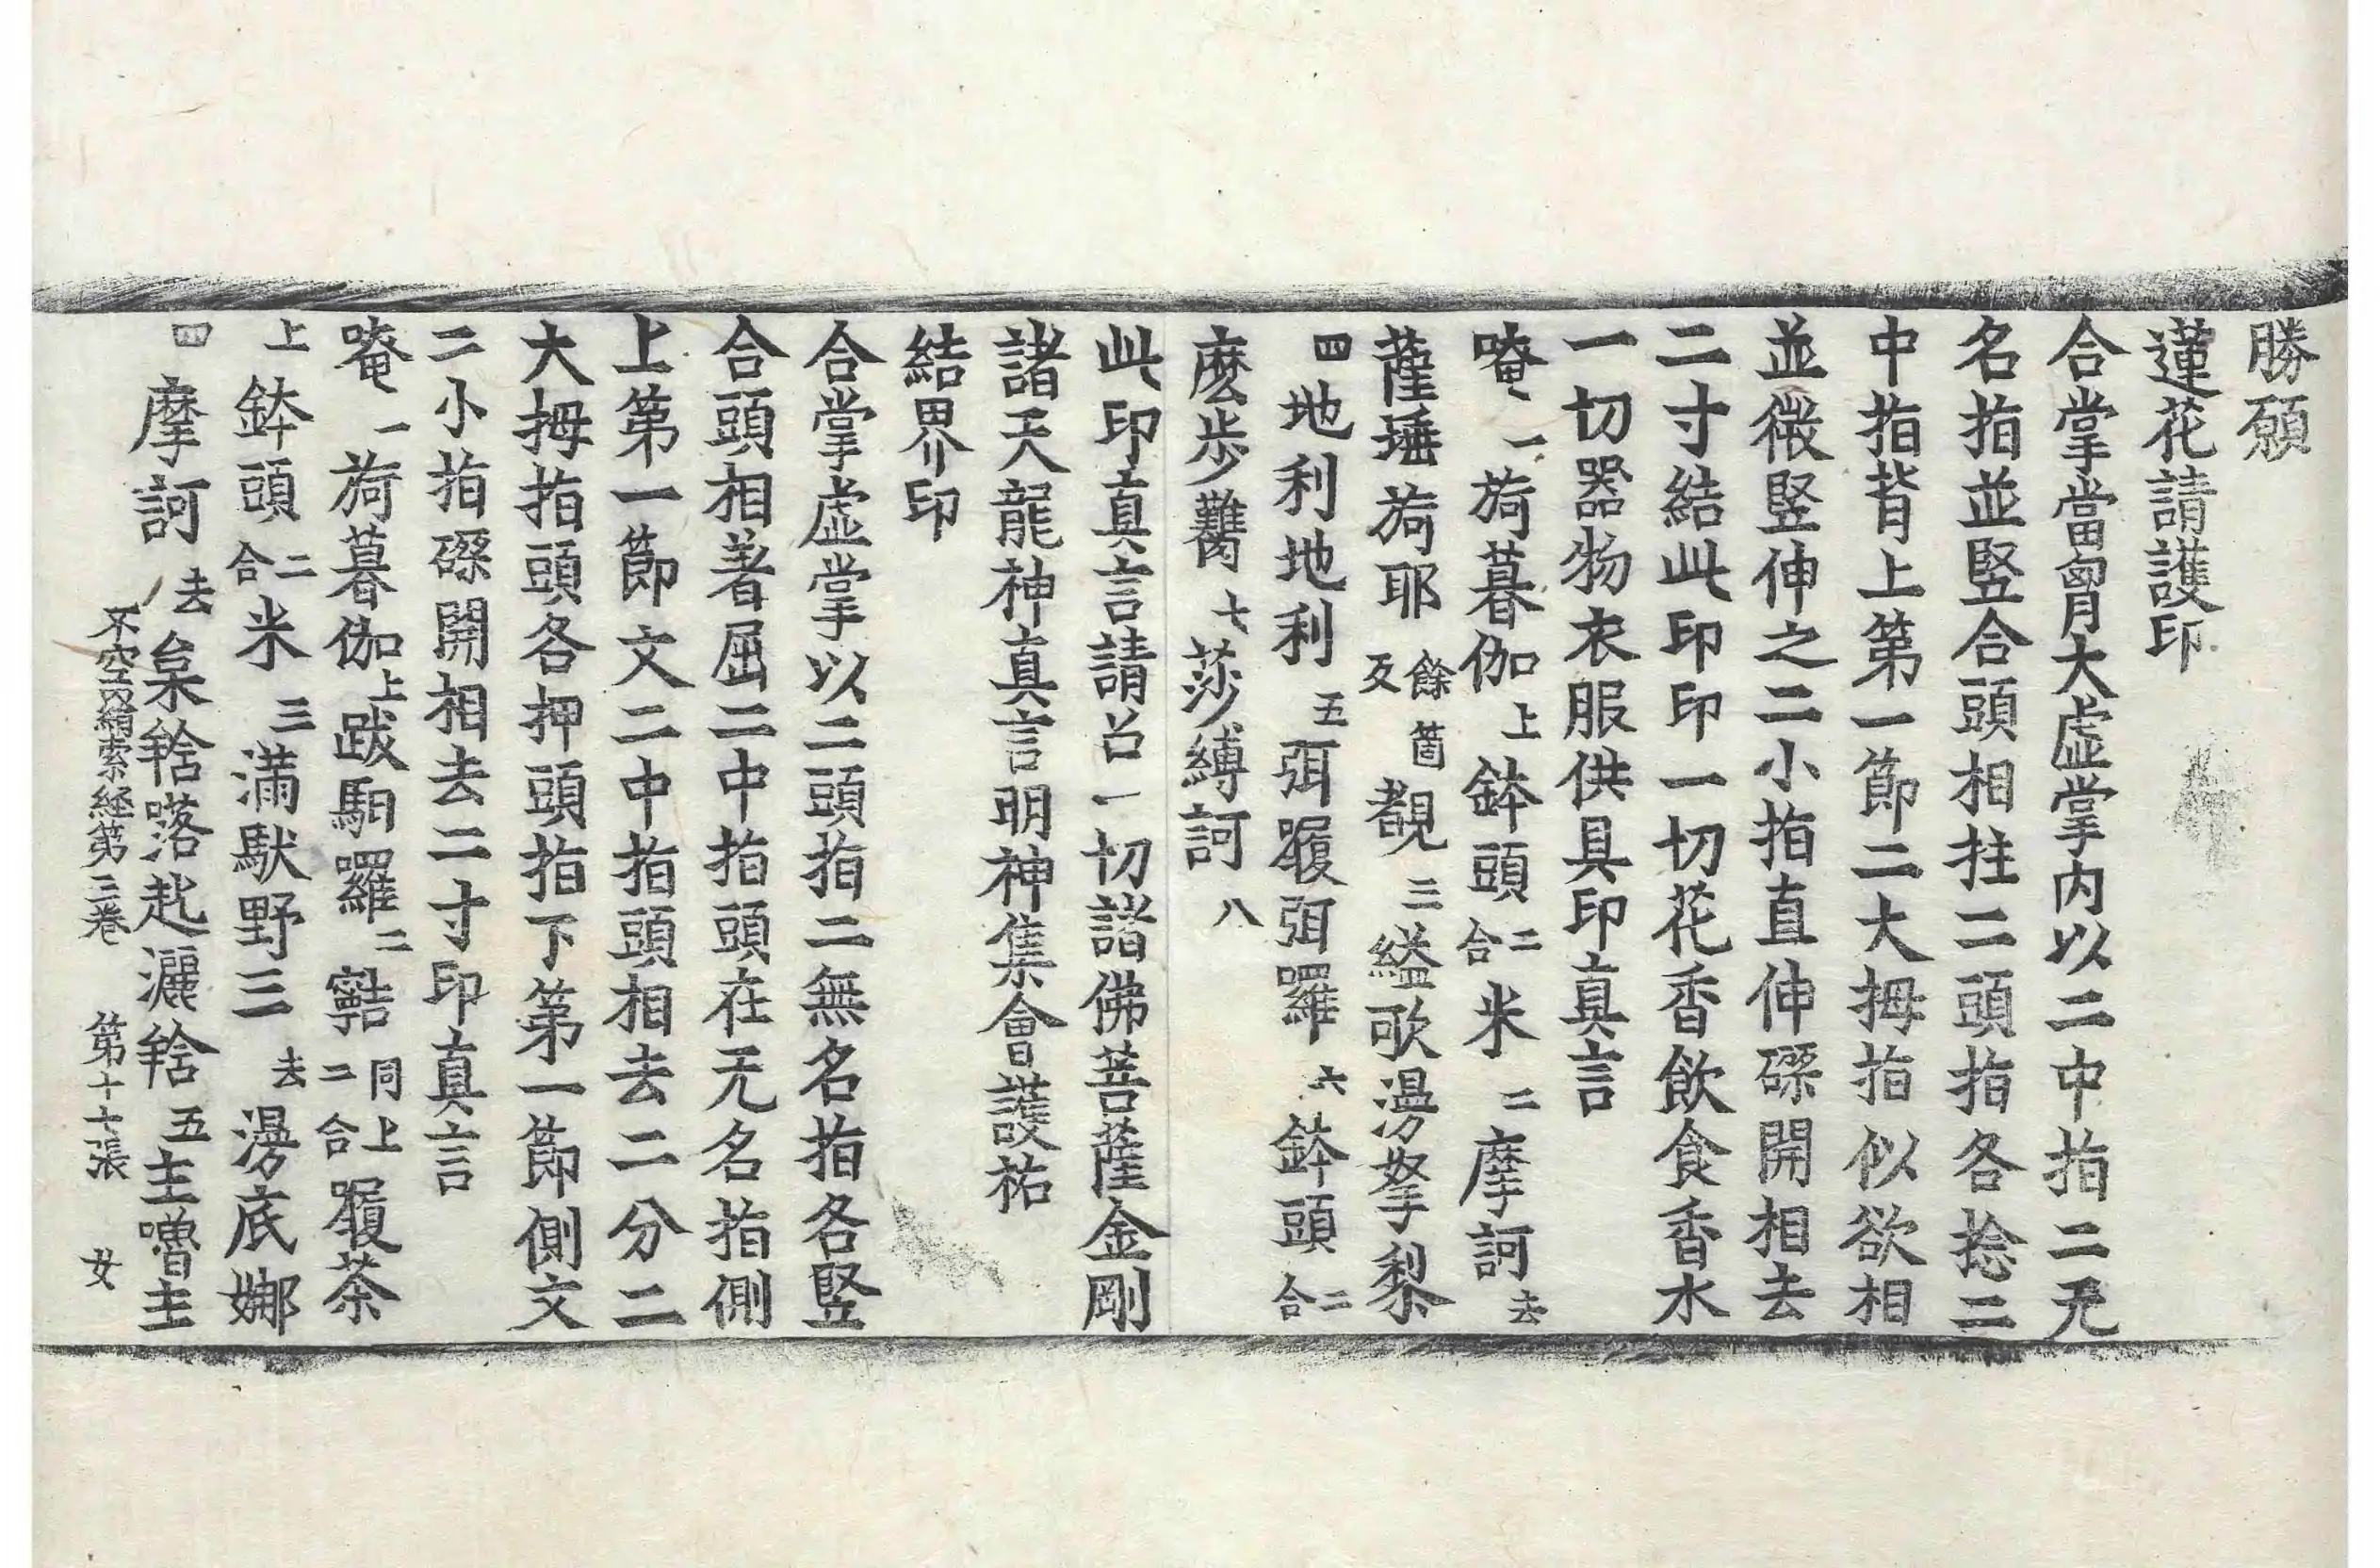 勝願
蓮花請護印
合掌當胷大虛掌內以二中指二无
名指並竪合頭相拄二頭指各捻二
中指背上第一節二大拇指似欲相
並微竪伸之二小指直伸磔開相去
二寸結此印印一切花香飲食香水
一切器物衣服供具印真言
唵一旖暮伽上鉢頭二合米二摩訶去
薩埵旖耶餘箇反覩三縊歌㵧拏梨
四地利地利五弭履弭囉六鉢頭二合
麽步嚲七莎縛訶八
此印真言請召一切諸佛菩薩金剛
諸天龍神真言明神集會護祐
結界印
合掌虛掌以二頭指二無名指各竪
合頭相著屈二中指頭在无名指側
上第一節文二中指頭相去二分二
大拇指頭各押頭指下第一節側文
二小指磔開相去二寸印真言
唵一旖暮伽上跋馹囉二同上二合履茶
上鉢頭二合米三滿馱野三去㵧底娜
四摩訶去㭐𤚥落起灑𤚥五主嚕主
不空罥索経第三卷 第十七張 女